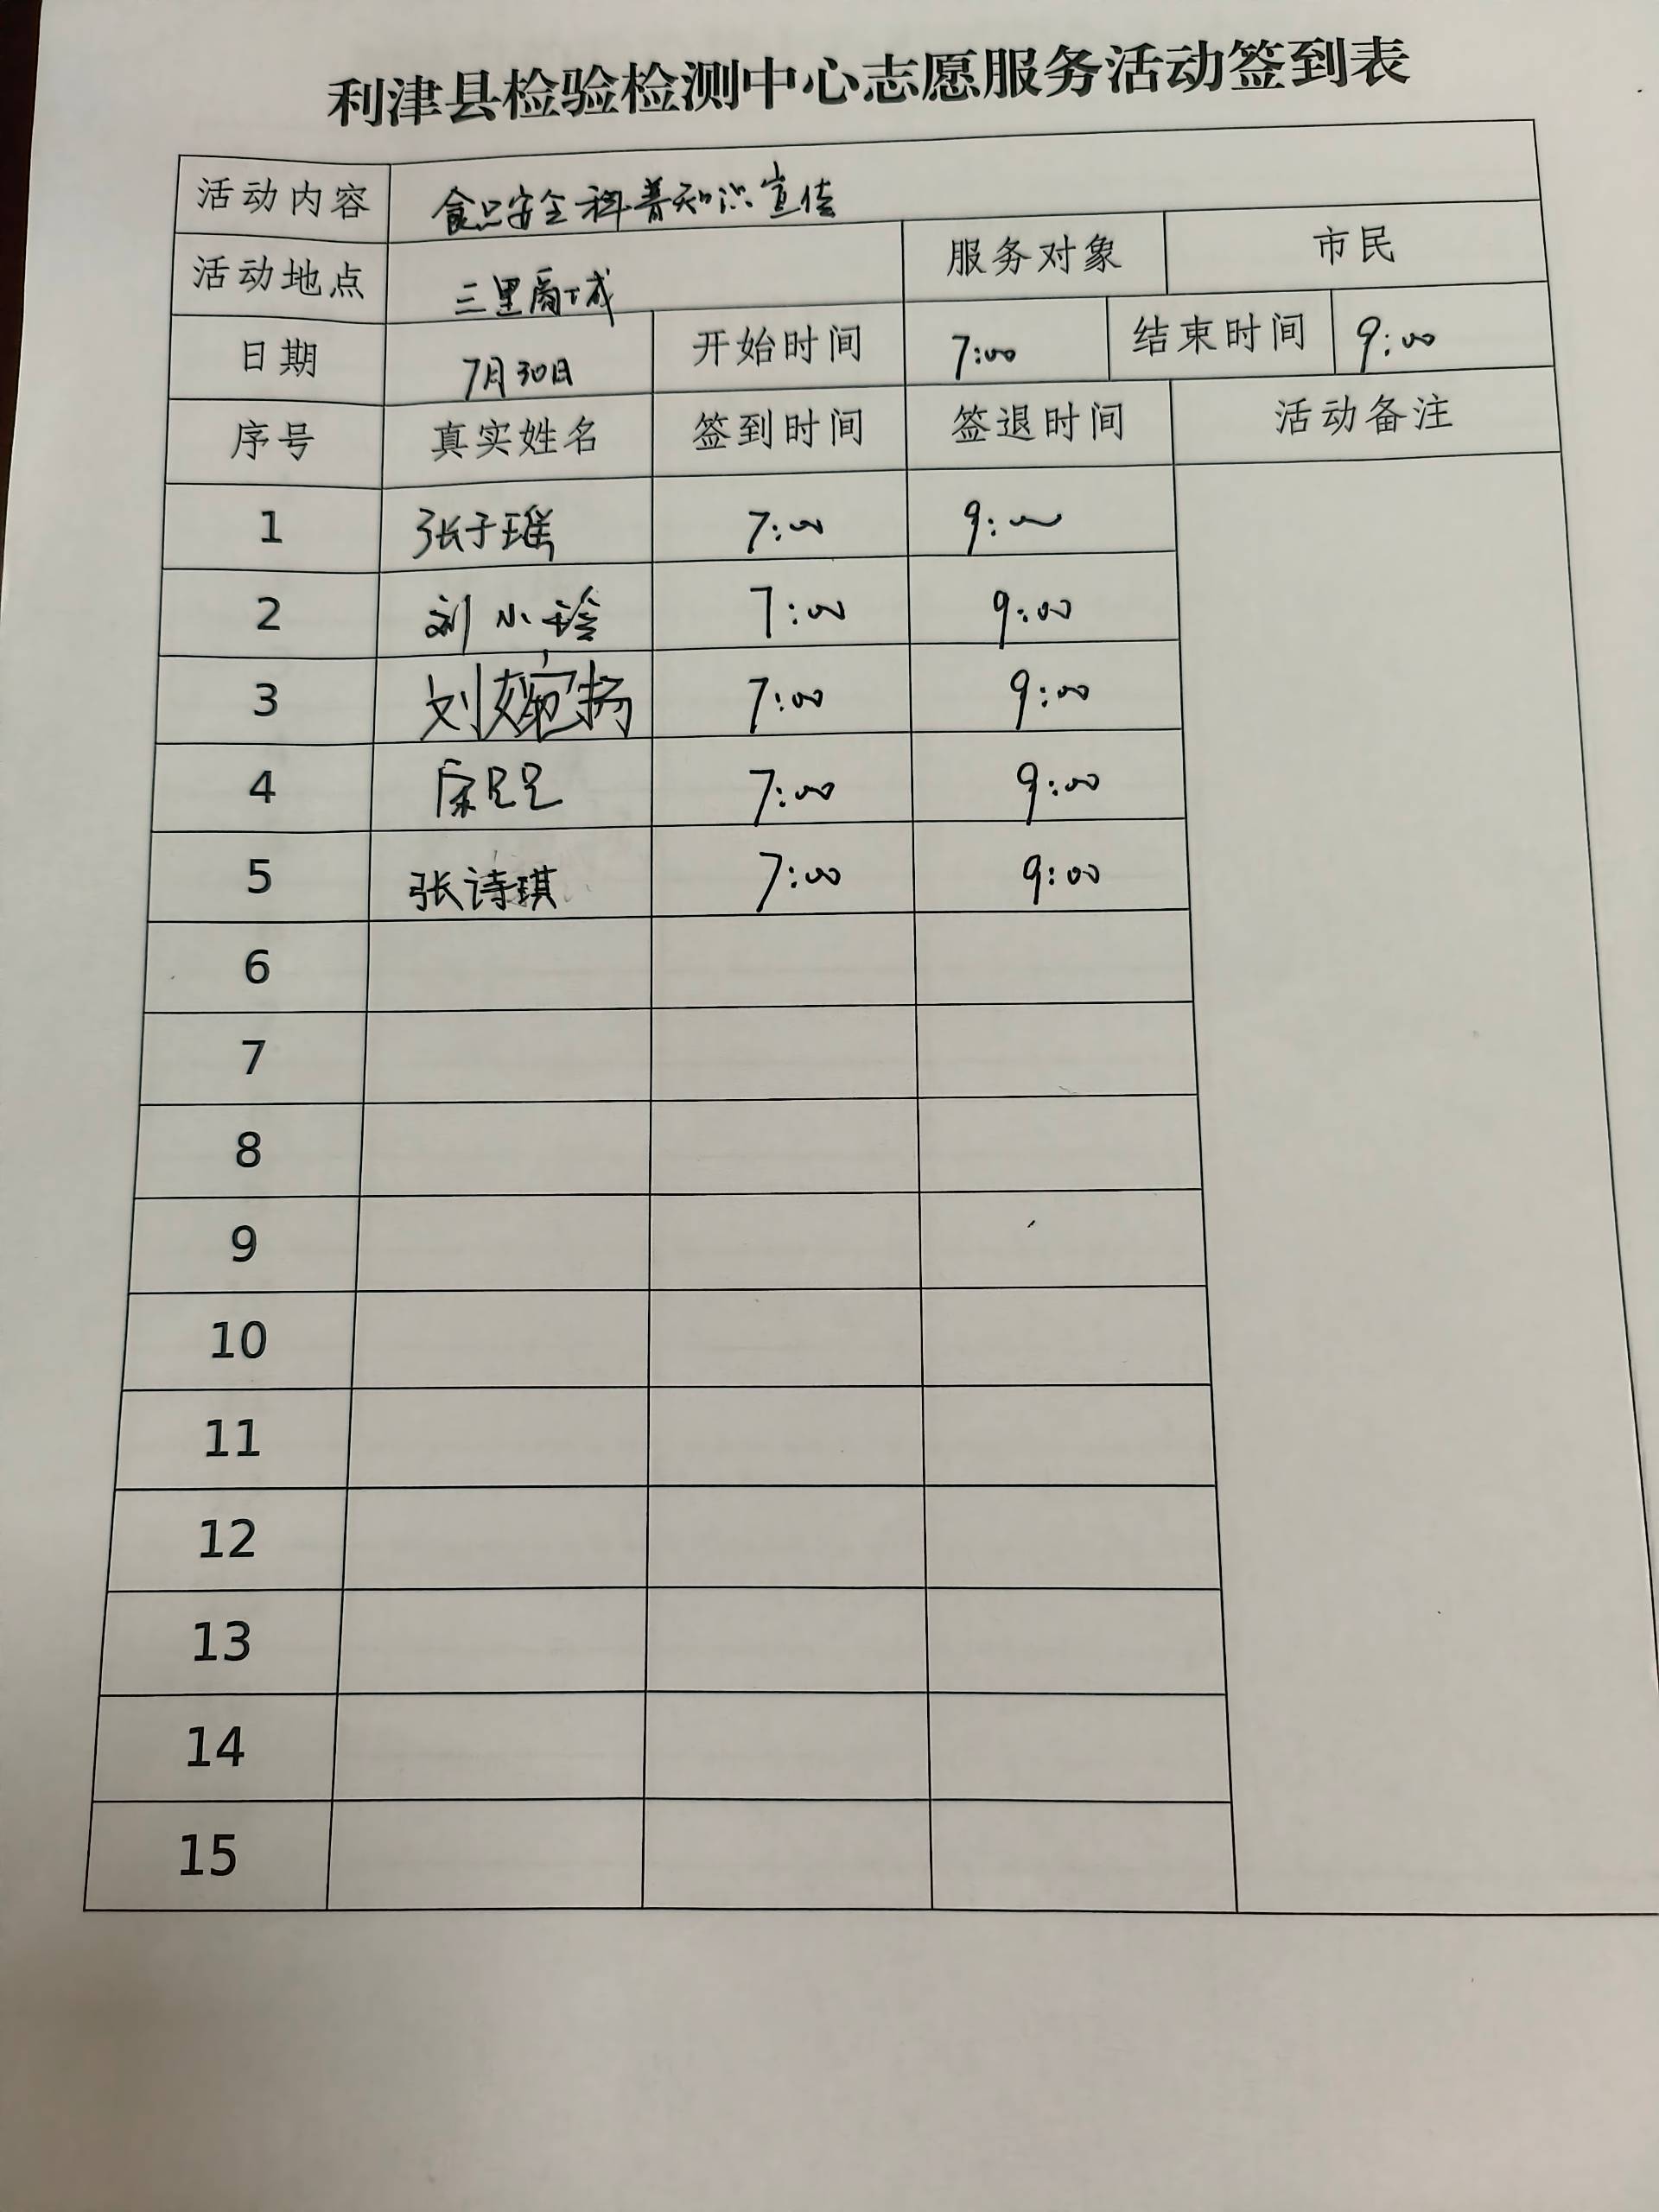 利津县检验检测中心志愿服务活动签到表
活动内容 食品安全科普知识宣传
活动地点 三里商城 服务对象 市民
日期 7月30日 开始时间 7:00 结束时间 9:00
序号 真实姓名 签到时间 签退时间 活动备注
1 张子瑶 7:00 9:00
2 刘小玲 7:00 9:00
3 刘婉扬 7:00 9:00
4 7:00 9:00
5 张诗琪 7:00 9:00
6
7
8
9
10
11
12
13
14
15